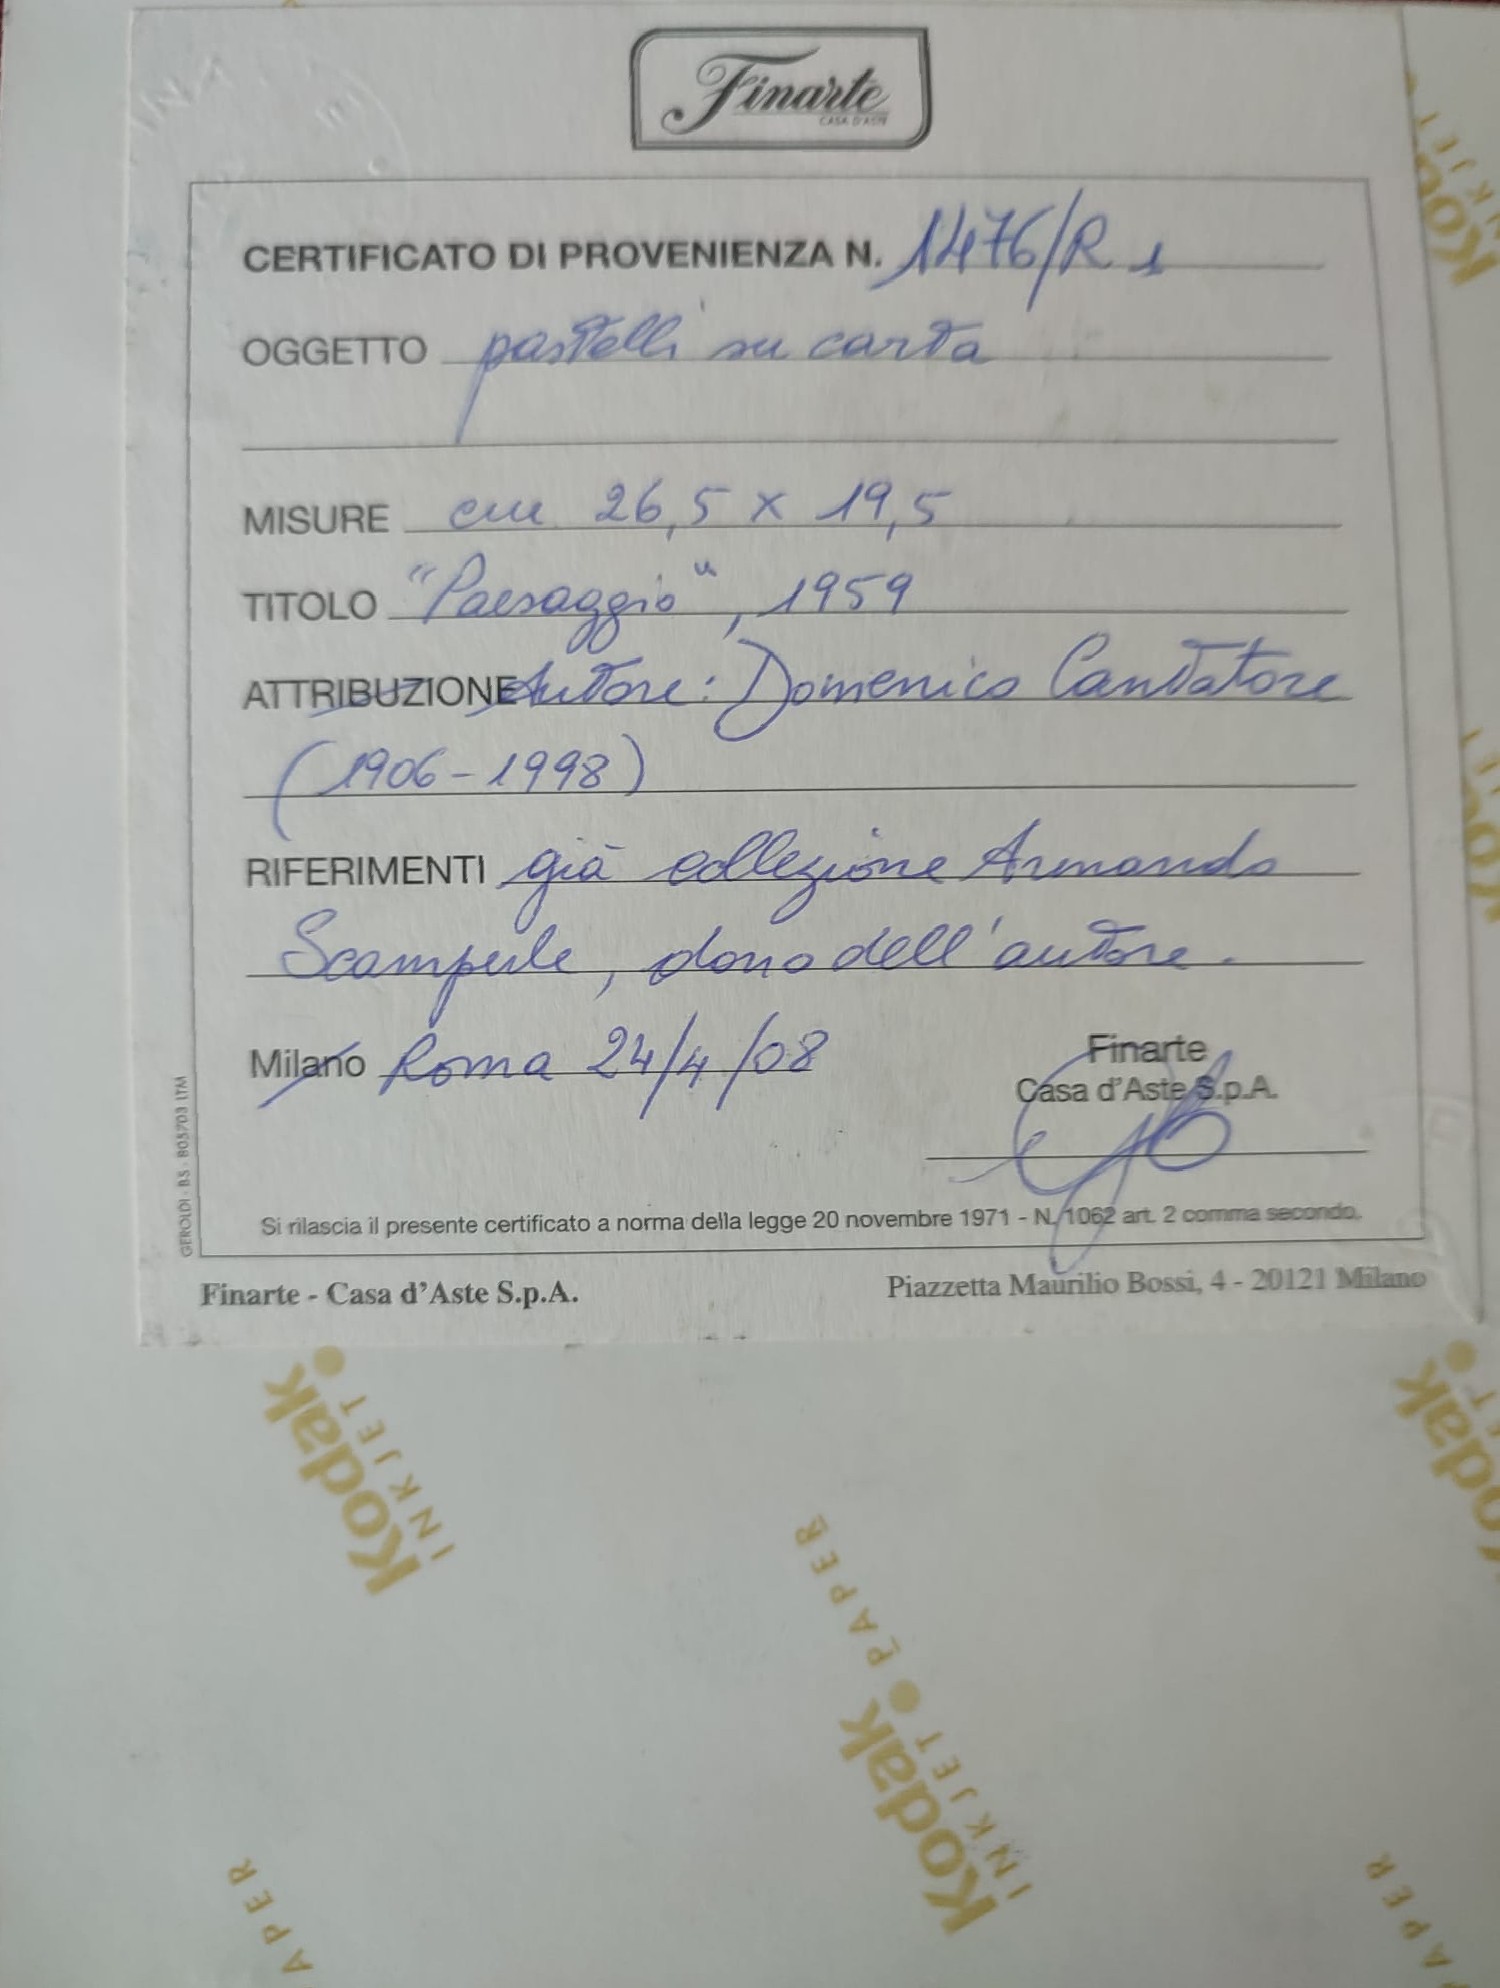 Finarte
CASA D'ASTE
CERTIFICATO DI PROVENIENZA N. 1476/R 1
OGGETTO pastelli su carta
MISURE cm 26,5 x 19,5
TITOLO "Paesaggio", 1959
ATTRIBUZIONE Autore: Domenico Cantatore
(1906-1998)
RIFERIMENTI già collezione Armando
Scamperle, dono dell'autore.
Milano Roma 24/4/08
Finarte
Casa d'Aste S.p.A.
Si rilascia il presente certificato a norma della legge 20 novembre 1971 - N. 1062 art. 2 comma secondo.
GEROLDI - BS - 805703 ITM
Finarte - Casa d'Aste S.p.A. Piazzetta Maurilio Bossi, 4 - 20121 Milano
Kodak
INKJET
PAPER
Kodak
INKJET
Kodak
PAPER
Kodak
INKJET